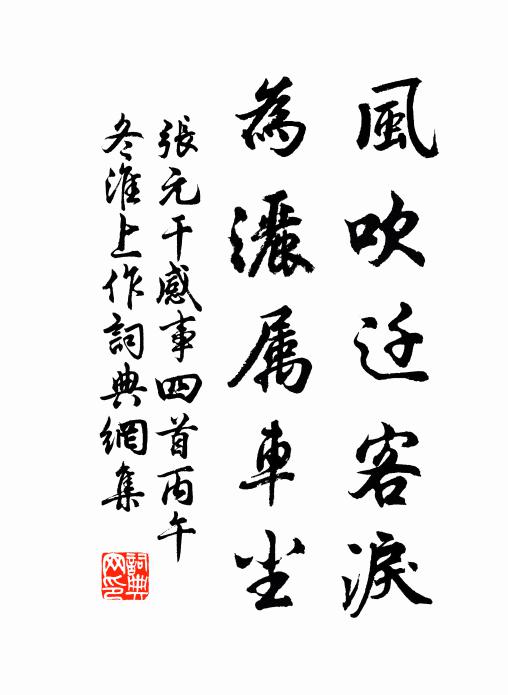 風吹迁客淚
為灑属車尘
張元干感事四首丙午
冬淮上作詞典網集
詞典
网印